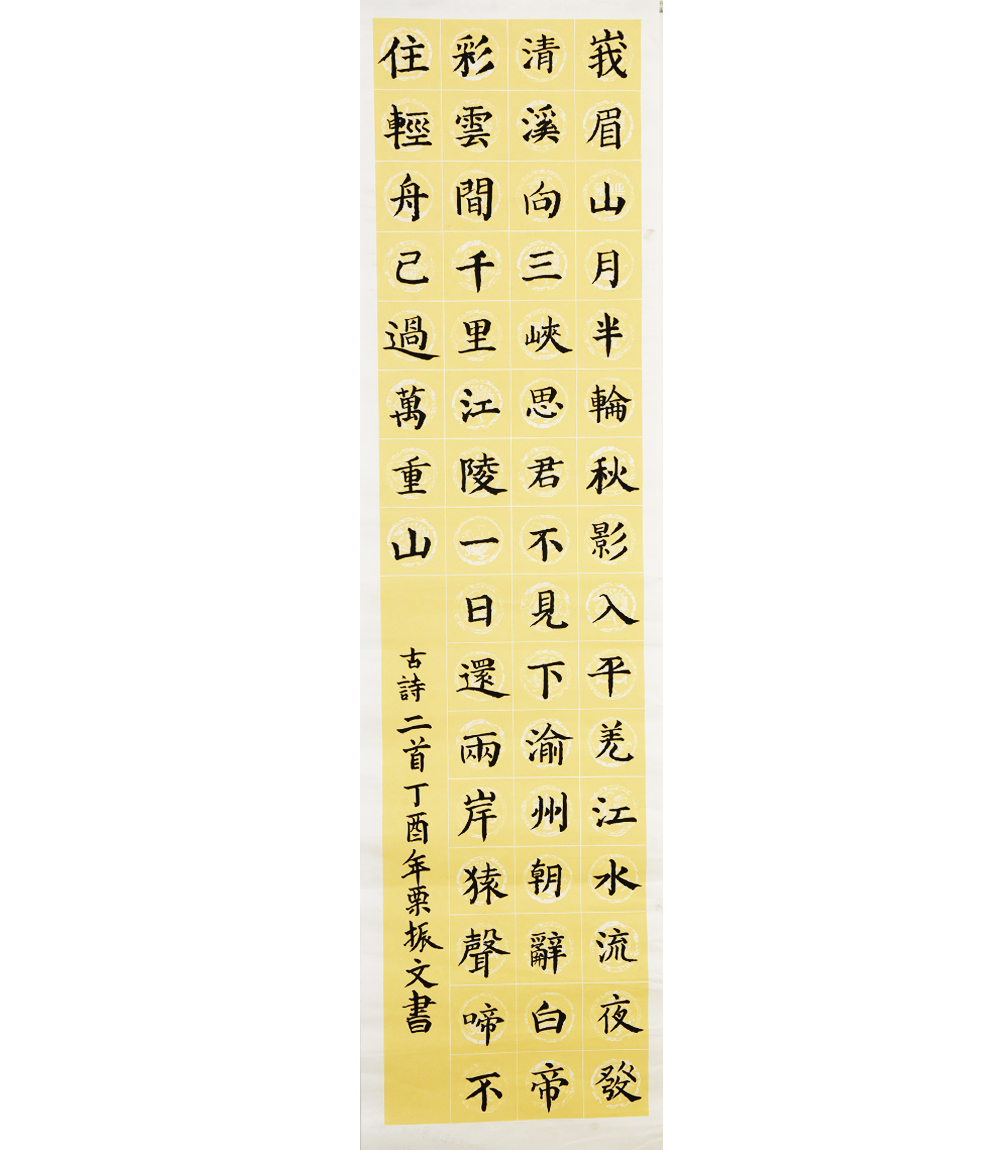 峩眉山月半輪秋影入平羌江水流夜發
清溪向三峽思君不見下渝州朝辭白帝
彩雲間千里江陵一日還兩岸猿聲啼不
住輕舟已過萬重山
古詩二首丁酉年栗振文書